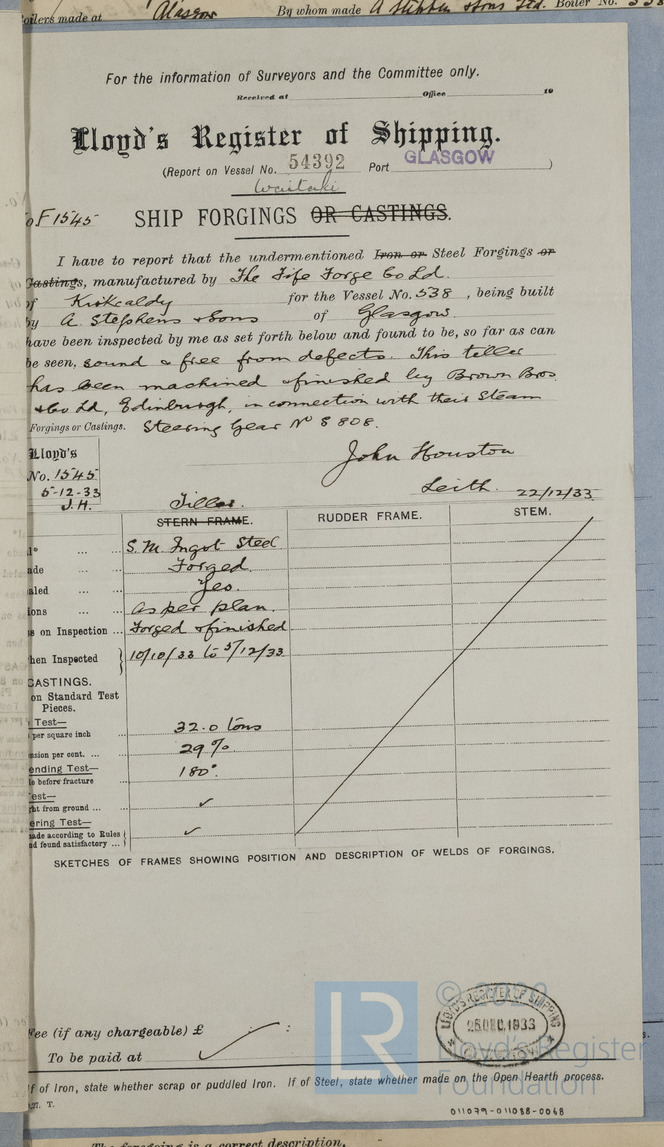 Boilers made at Glasgow By whom made A Stephen & Sons Ltd. Boiler No. 538
For the information of Surveyors and the Committee only.
Received at Office 19
Lloyd's Register of Shipping.
(Report on Vessel No. 54392 Port GLASGOW )
Waitaki
No F1545 SHIP FORGINGS OR CASTINGS.
I have to report that the undermentioned Iron or Steel Forgings or
Castings, manufactured by The Fife Forge Co Ld.
of Kirkcaldy for the Vessel No. 538, being built
by A. Stephens & Sons of Glasgow
have been inspected by me as set forth below and found to be, so far as can
be seen, sound & free from defects. This tiller
has been machined & finished by Brown Bros
& Co Ld, Edinburgh, in connection with their Steam
Forgings or Castings. Steering Gear No S 808.
Lloyd's
No. 1545
5-12-33
J.H.
John Houston
Leith. 22/12/33
Tiller.
STERN FRAME. RUDDER FRAME. STEM.
... ... S.M. Ingot Steel
ade ... ... Forged
aled ... ... Yes.
ions ... ... As per plan.
s on Inspection ... Forged & finished
hen Inspected } 10/10/33 to 5/12/33
CASTINGS.
on Standard Test
Pieces.
Test—
per square inch ... 32.0 tons
nsion per cent. ... ... 29%
ending Test—
le before fracture ... 180°.
est—
ht from ground ... ... ✓
ering Test—
ade according to Rules
nd found satisfactory ... } ✓
SKETCHES OF FRAMES SHOWING POSITION AND DESCRIPTION OF WELDS OF FORGINGS.
Fee (if any chargeable) £ :
To be paid at
LLOYD'S REGISTER OF SHIPPING
DEC. 1933
LR
© 2022
Lloyd's Register
Foundation
If of Iron, state whether scrap or puddled Iron. If of Steel, state whether made on the Open Hearth process.
m. T.
011079-011088-0068
The foregoing is a correct description.